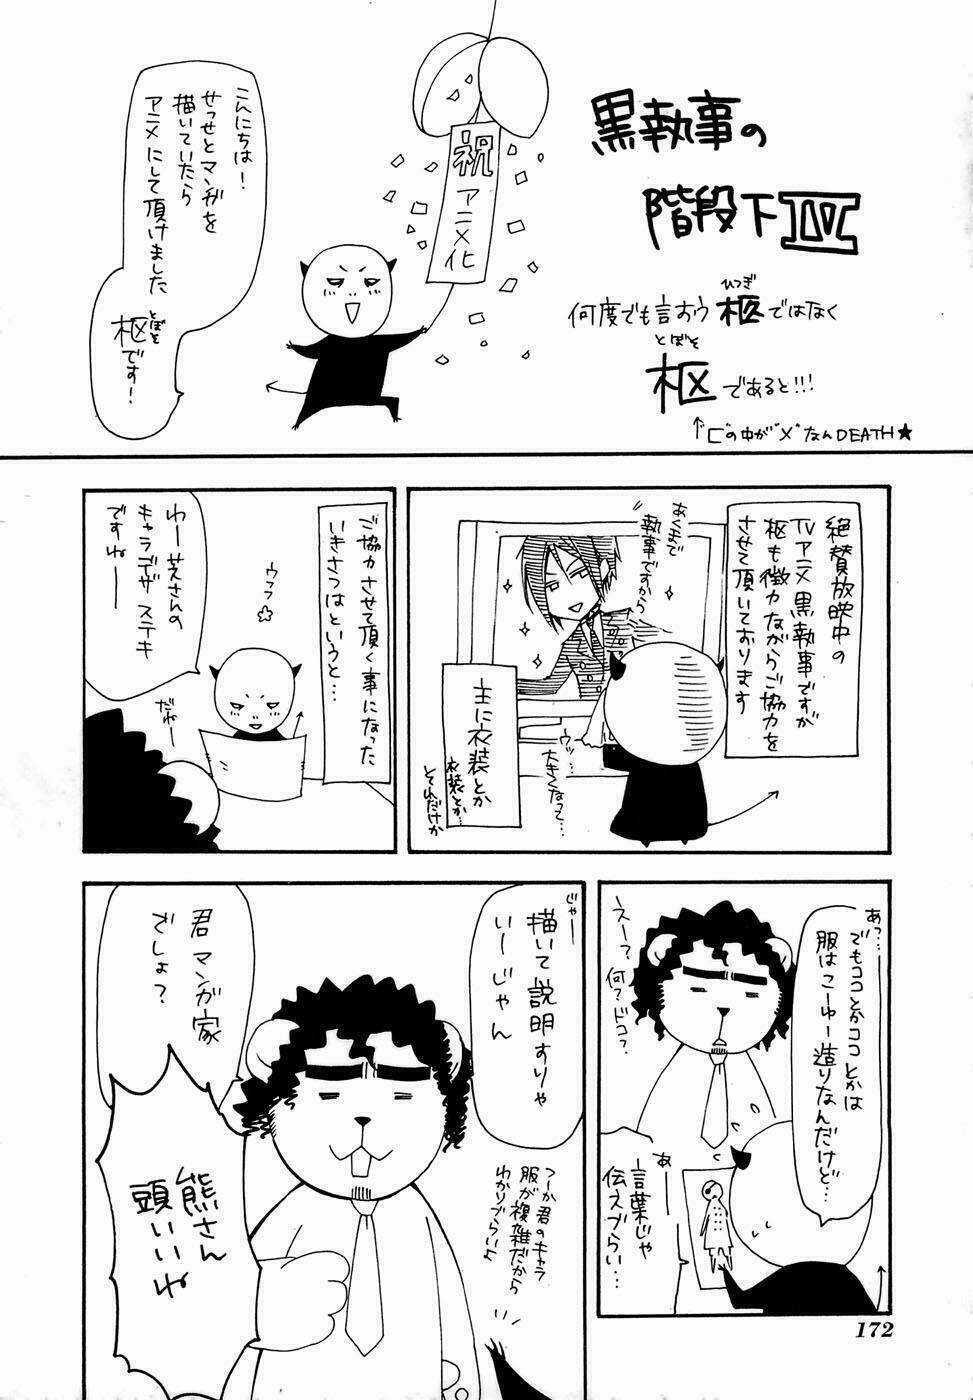 黒執事の
階段下Ⅳ
ひつぎ
何度でも言おう 柩ではなく
とぼそ
枢であると!!!
↑"匚"の中が"メ"なんDEATH★
祝
アニメ化
こんにちは!
せっせとマンガを
描いていたら
アニメにして頂けました
とぼそ
枢です!
絶賛放映中の
TVアニメ黒執事ですが
枢も微力ながらご協力を
させて頂いております
あくまで
執事ですから
ウッ…
大きくなって…
主に衣装とか
衣装とか…
それだけか
ご協力させて頂く事になった
いきさつはというと…
ウフフ
わー芝さんの
キャラデザ ステキ
ですねー
だねー
あっ…
でもココとかココとかは
服はこーゆー造りなんだけど…
えー?
何?ドコ?
あー
言葉じゃ
伝えづらい…
じゃー
描いて説明すりゃ
いーじゃん
君 マンガ家
でしょ?
つーか君のキャラ
服が複雑だから
わかりづらいよ
熊さん
頭いいね
172